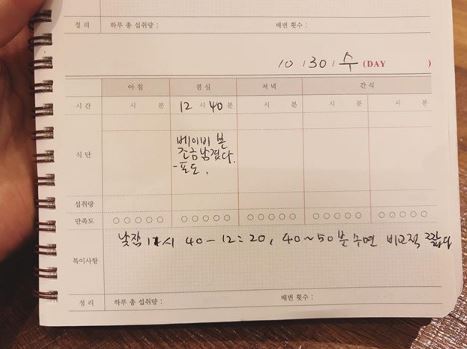 정 리 하루 총 섭취량 : 배변 횟수 :
10 / 30 / 수 (DAY )
아 침 점 심 저 녁 간 식
시 간 시 분 12 시 40 분 시 분 시 분 시 분
식 단 베이비 본
조금 남겼다.
- 포도.
섭취량
만족도 ○○○○○ ○○○○○ ○○○○○ ○○○○○ ○○○○○
낮잠 11시 40 - 12:20, 40~50분 수면 비교적 짧다
특이사항
정 리 하루 총 섭취량 : 배변 횟수 :